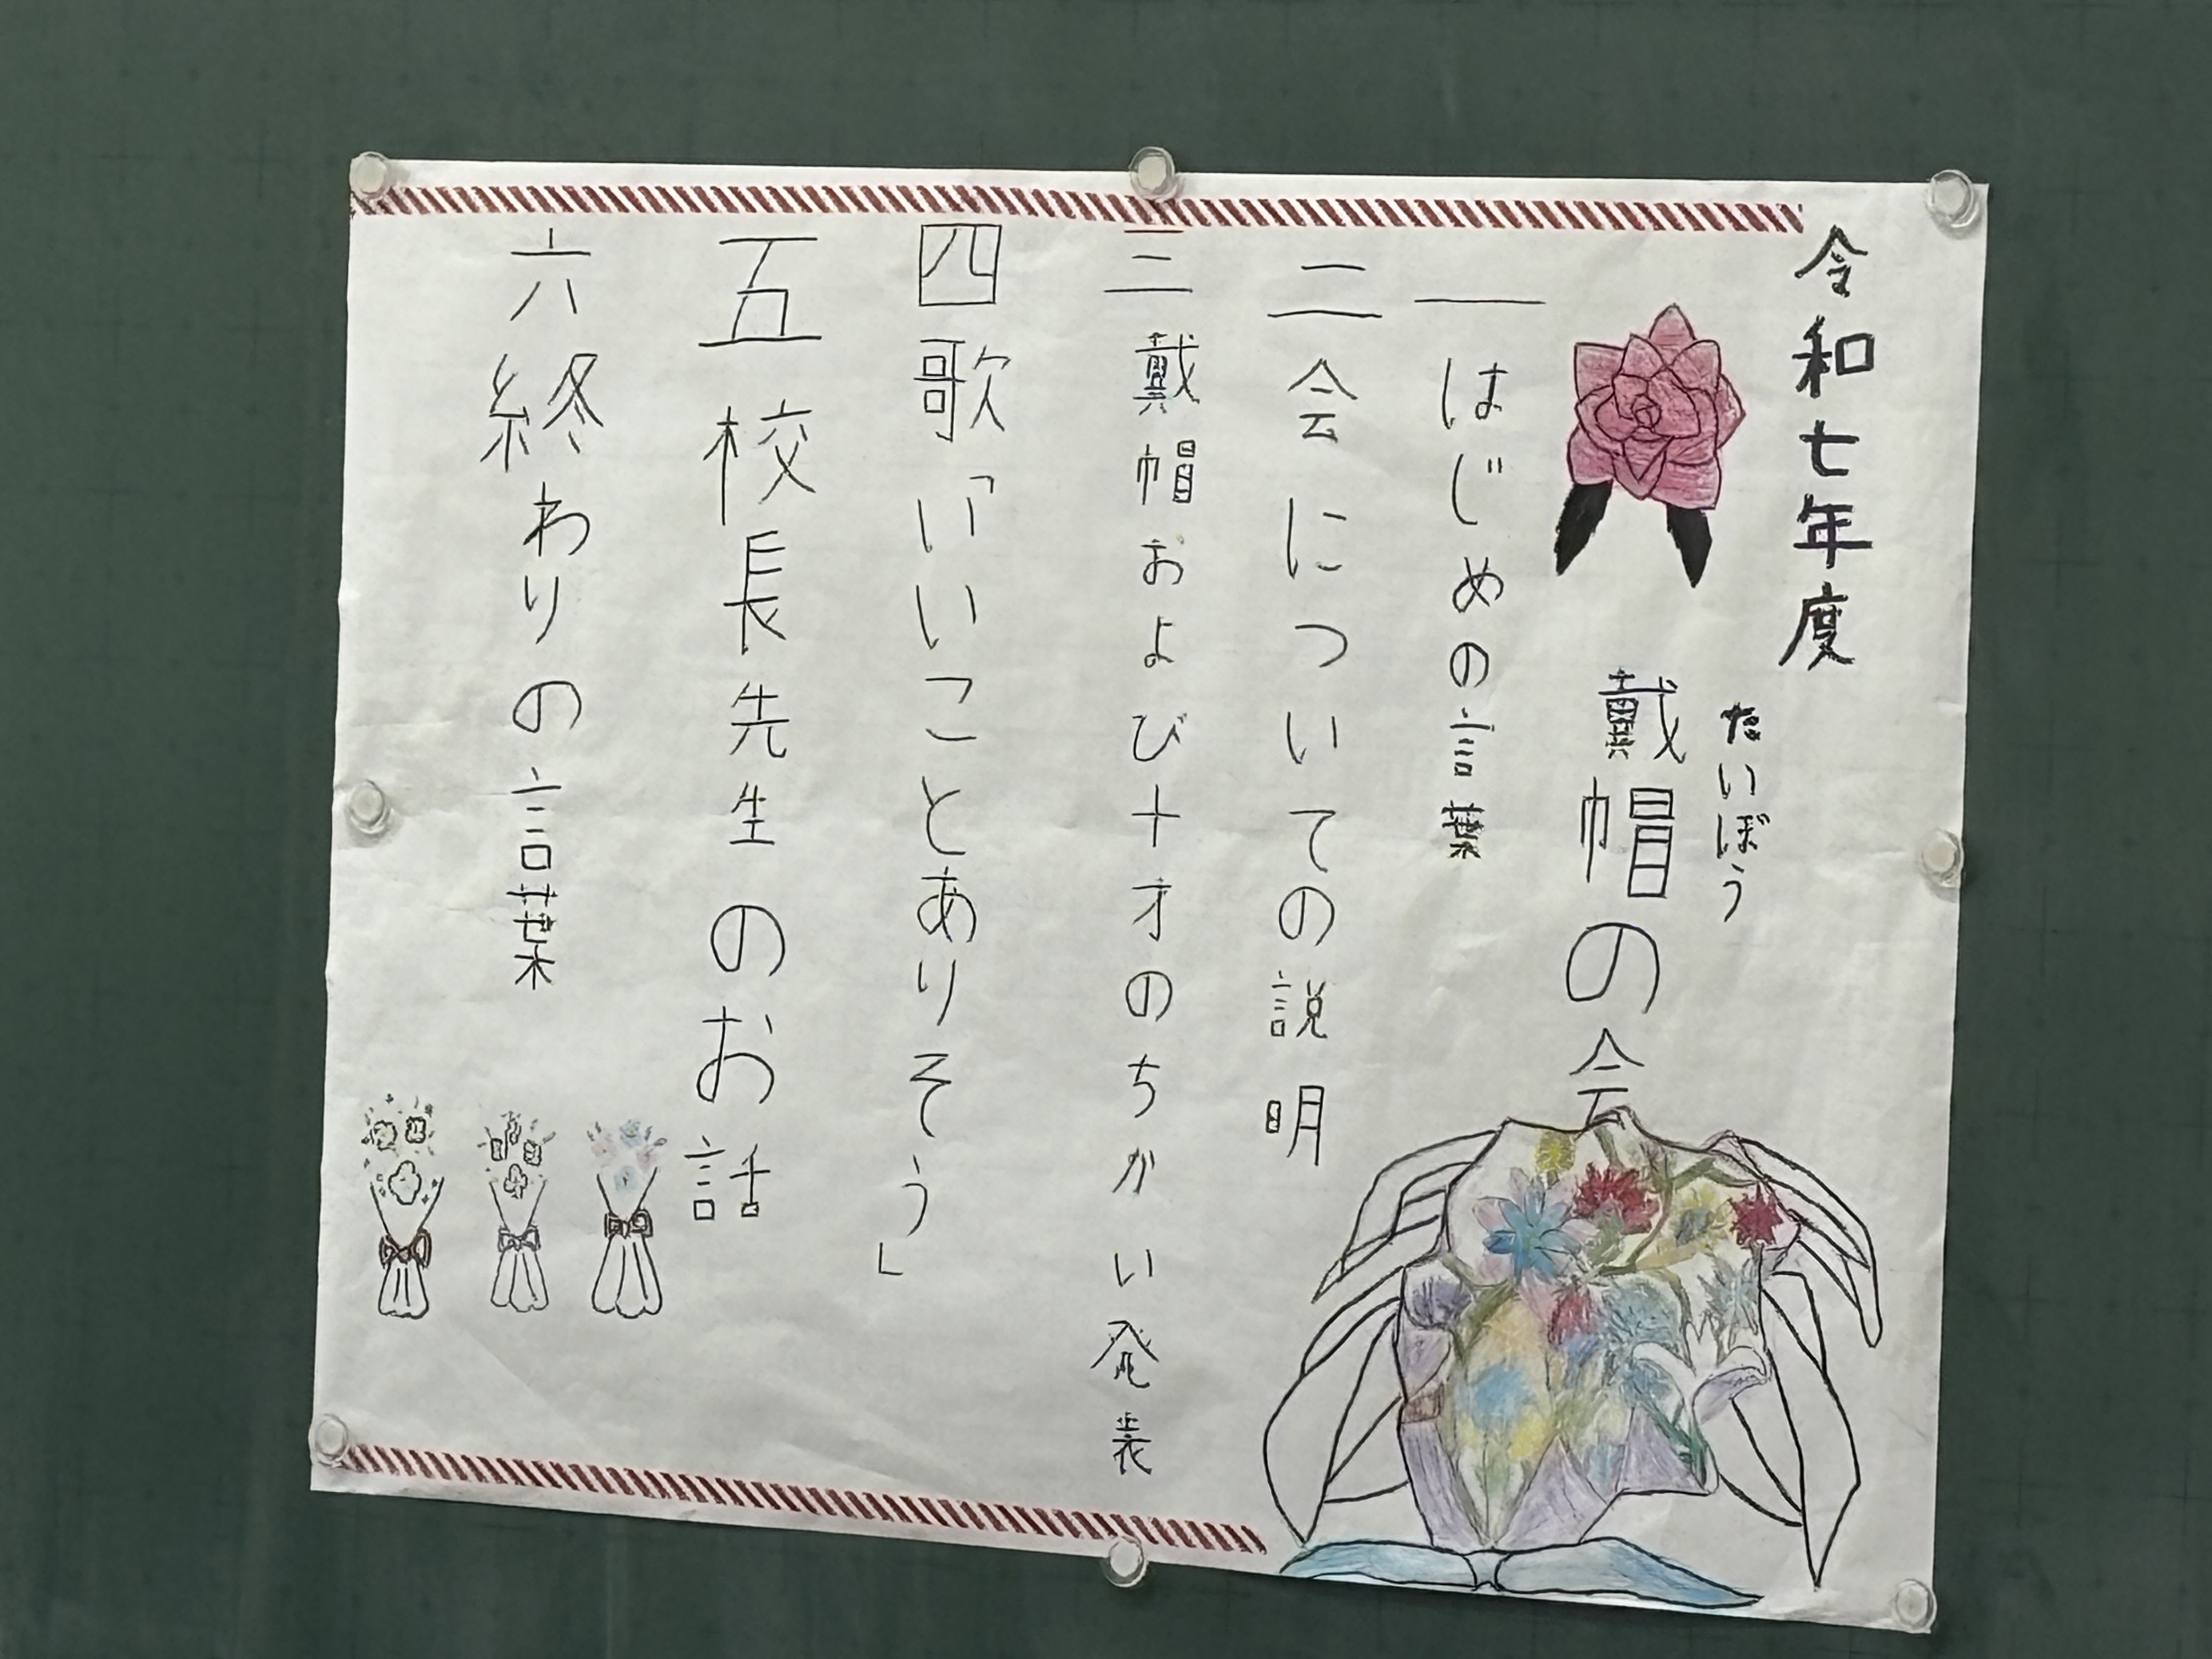 令和七年度
たいぼう
戴帽の会
一 はじめの言葉
二 会についての説明
三 戴帽および十才のちかい発表
四 歌「いいことありそう」
五 校長先生のお話
六 終わりの言葉